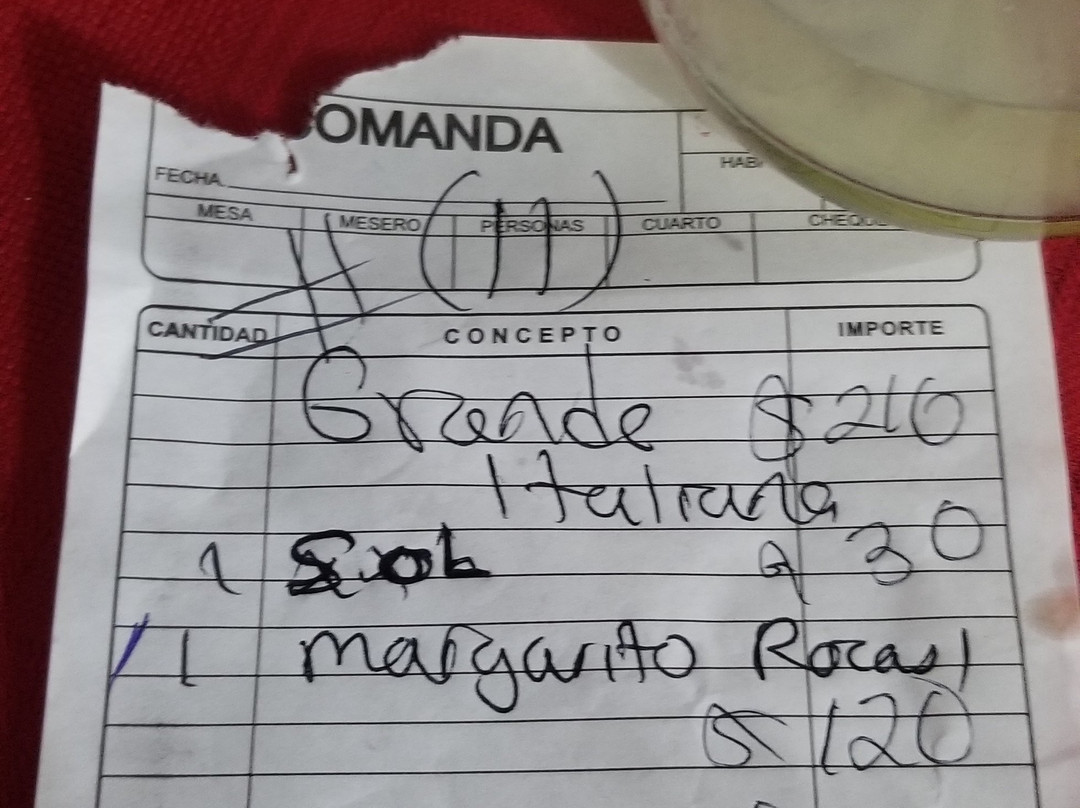 OMANDA
HAB
FECHA
MESA MESERO PERSONAS CUARTO CHEQUE
(11)
CANTIDAD CONCEPTO IMPORTE
Grande $210
Italiana
1 Sol $ 30
1 Margarito Rocas
$ 120